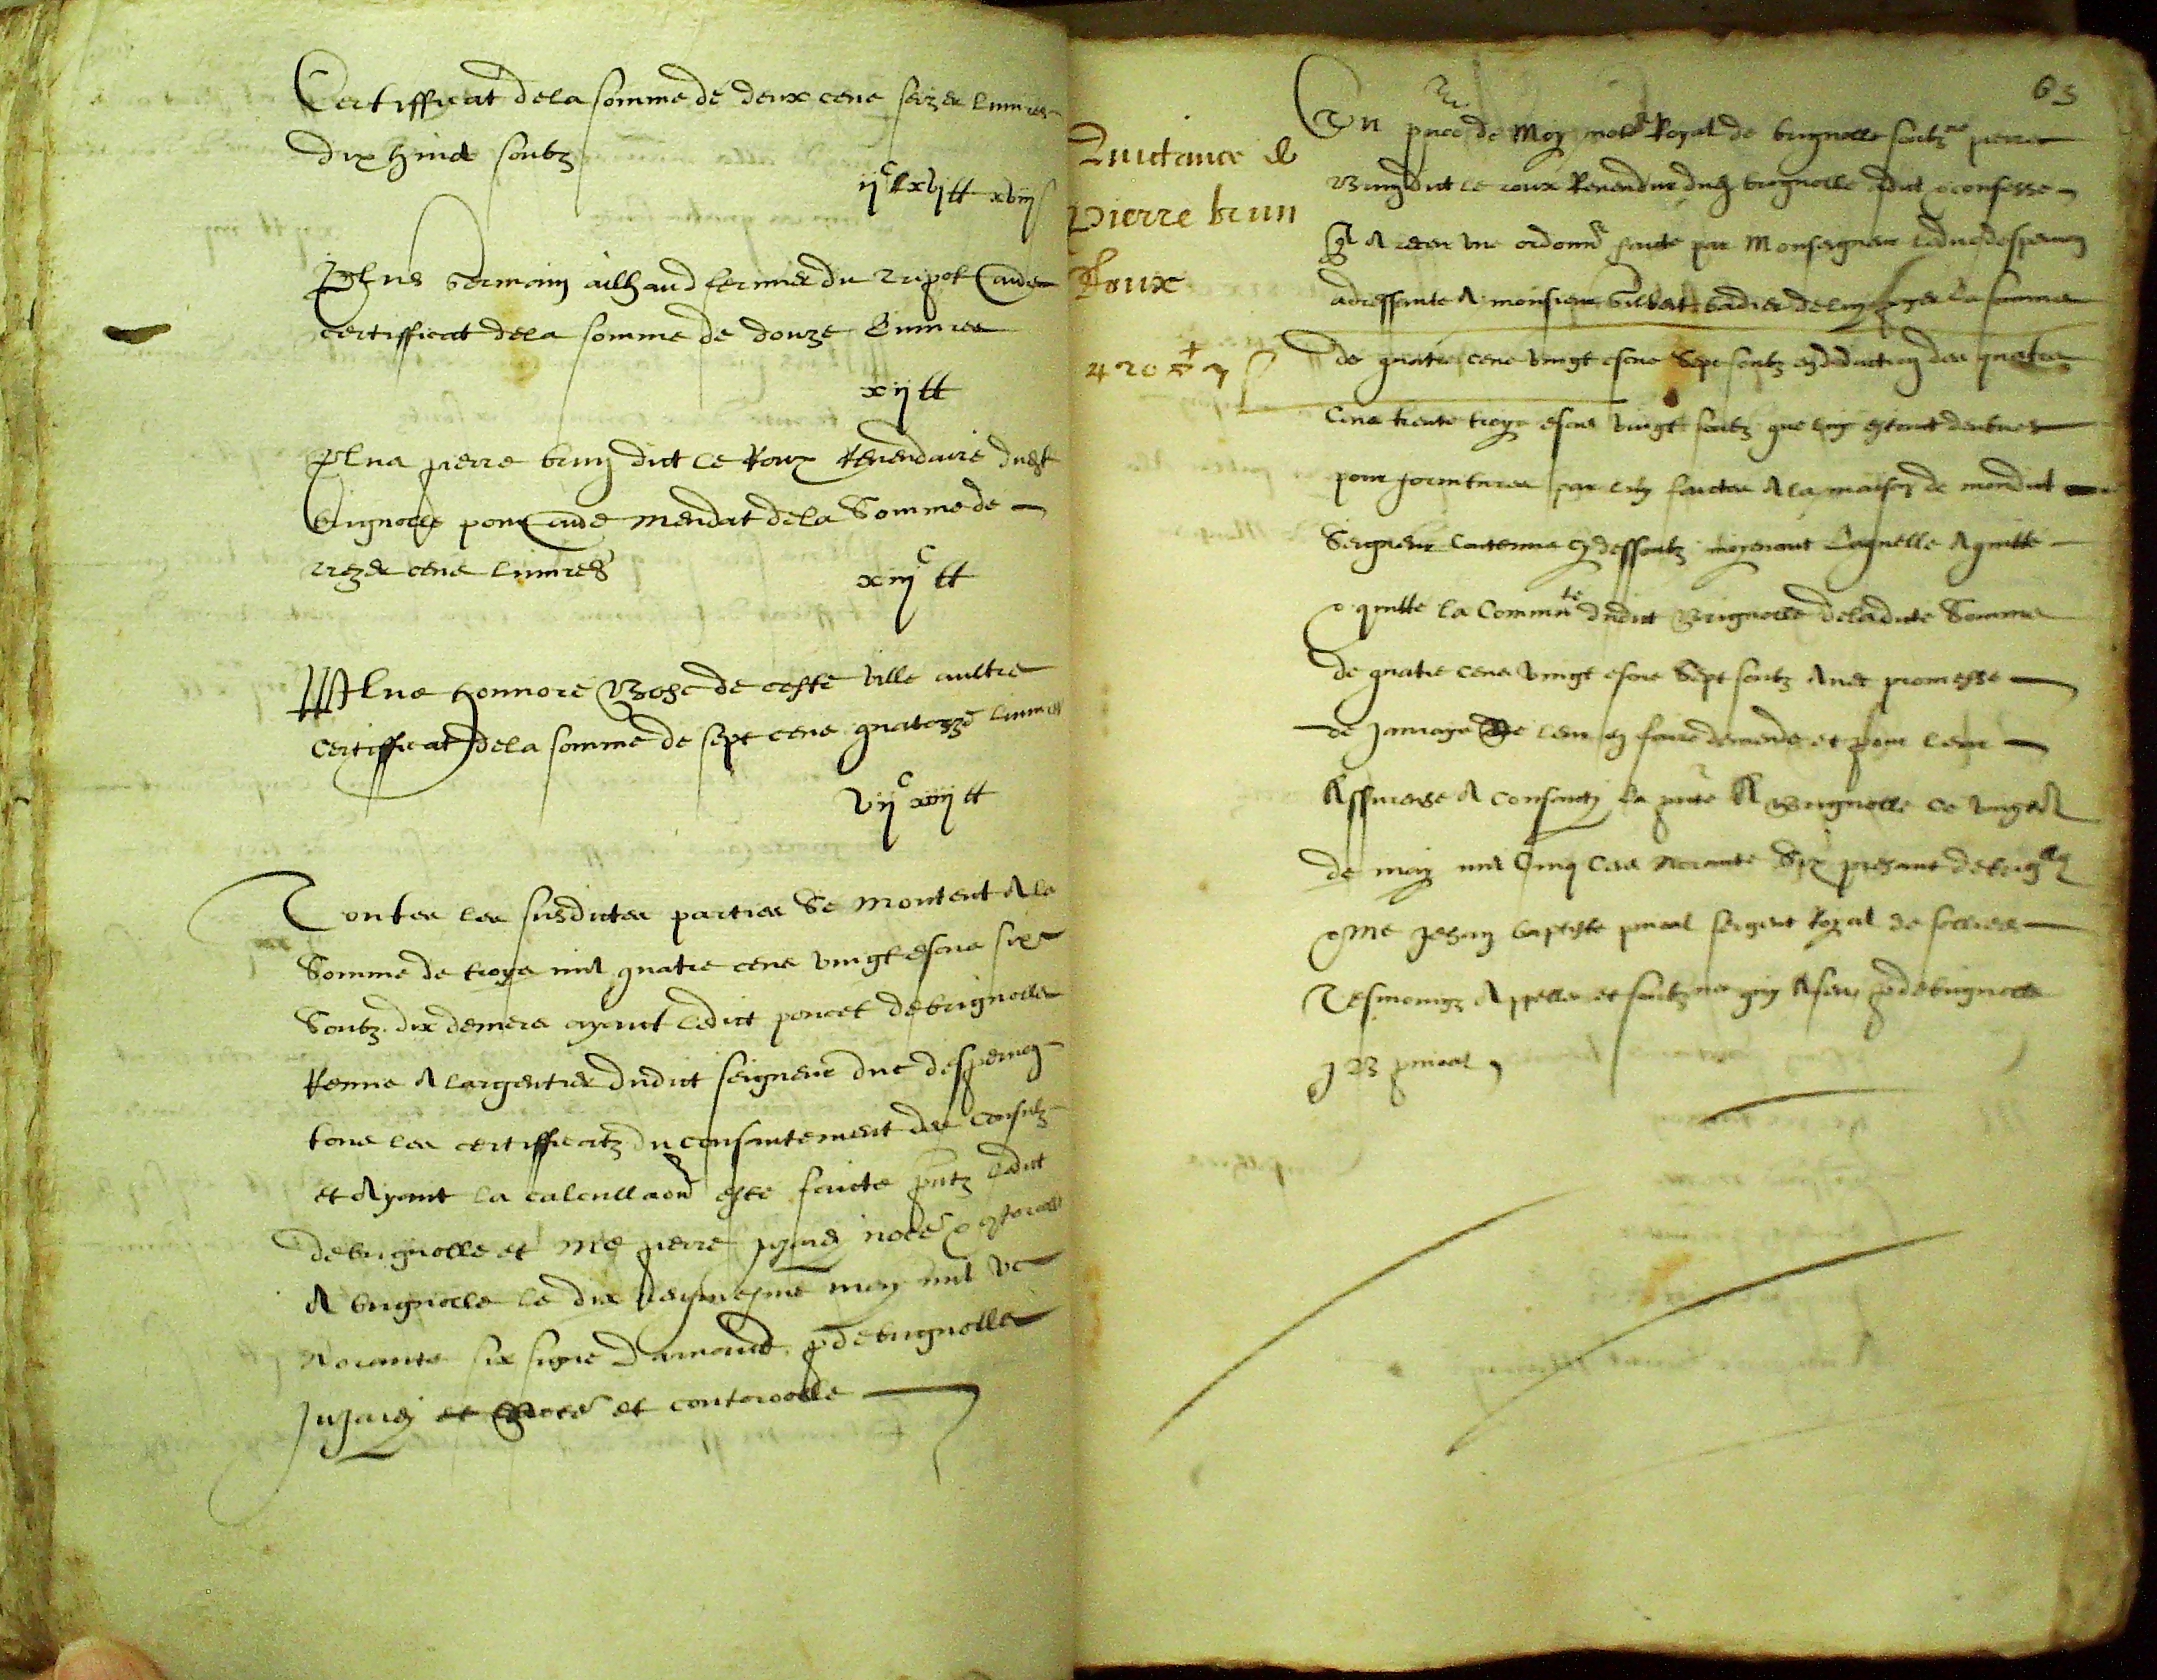 Certifficat de la somme de deux cens seize livres
dix huict soubz
ijc lxvj tt xviij s
Plus Germain ailhaud fermier du tripot aude
certifficat de la somme de douze livres
xij tt
Plus pierre brun dict le Roux Revendaire dudt
brignolle pour aude mendat de la Somme de
treze cens livres
xiijc tt
Plus honnore Bosc de ceste ville aultre
certifficat de la somme de sept cens quatorze livres
vijc xiiij tt
Toutes les susdites parties se montent A la
Somme de troys mil quatre cens vingt escus six
soubz dix deniers ayant ledict poncet de brignolle
Remis A largentier dudict seigneur duc despernon
tous les certifficatz du consantement des consulz
et Ayant la calcullaon este faicte pntz ledict
de brignolle et Me pierre notere
A brignolle le dix may mil vc
Nonante six signe Darnaud, p debrignolle
et notere et contorolle
63
Quictance de
Pierre brun
Roux
420 7 s
En pnce de Moy notere Royal de brignolle soubzne pierre
Brun dict le roux Revendeur dudt brignolle a dict & confesse
A une ordonnce faicte par Monseigneur le duc despernon
adressante A monsieur de luy payer la somme
de quatre cens vingt escus Sept soubz en deduction des quatre
cens trente troys escus vingt soubz que luy estoint deubues
pour fornitures par luy faictes A la maison de mondict
Seigneur contenue cy dessoubz moyenant Laquelle A quitte
& quitte la Commte dudict Brignolle de ladicte Somme
de quatre cens vingt escus Sept soubz Avec promesse
de Jamays ne leur en faire demende et pour leur
Asseurense A consanty la pnte A Brignolle ce vingt
de may mil cinq cens Nonante Six presant de brigolle
& Me Jehan baptiste sergent Royal de sollies
Tesmoingz Appelles et soubznes qui A sceu p debrignolle
J B